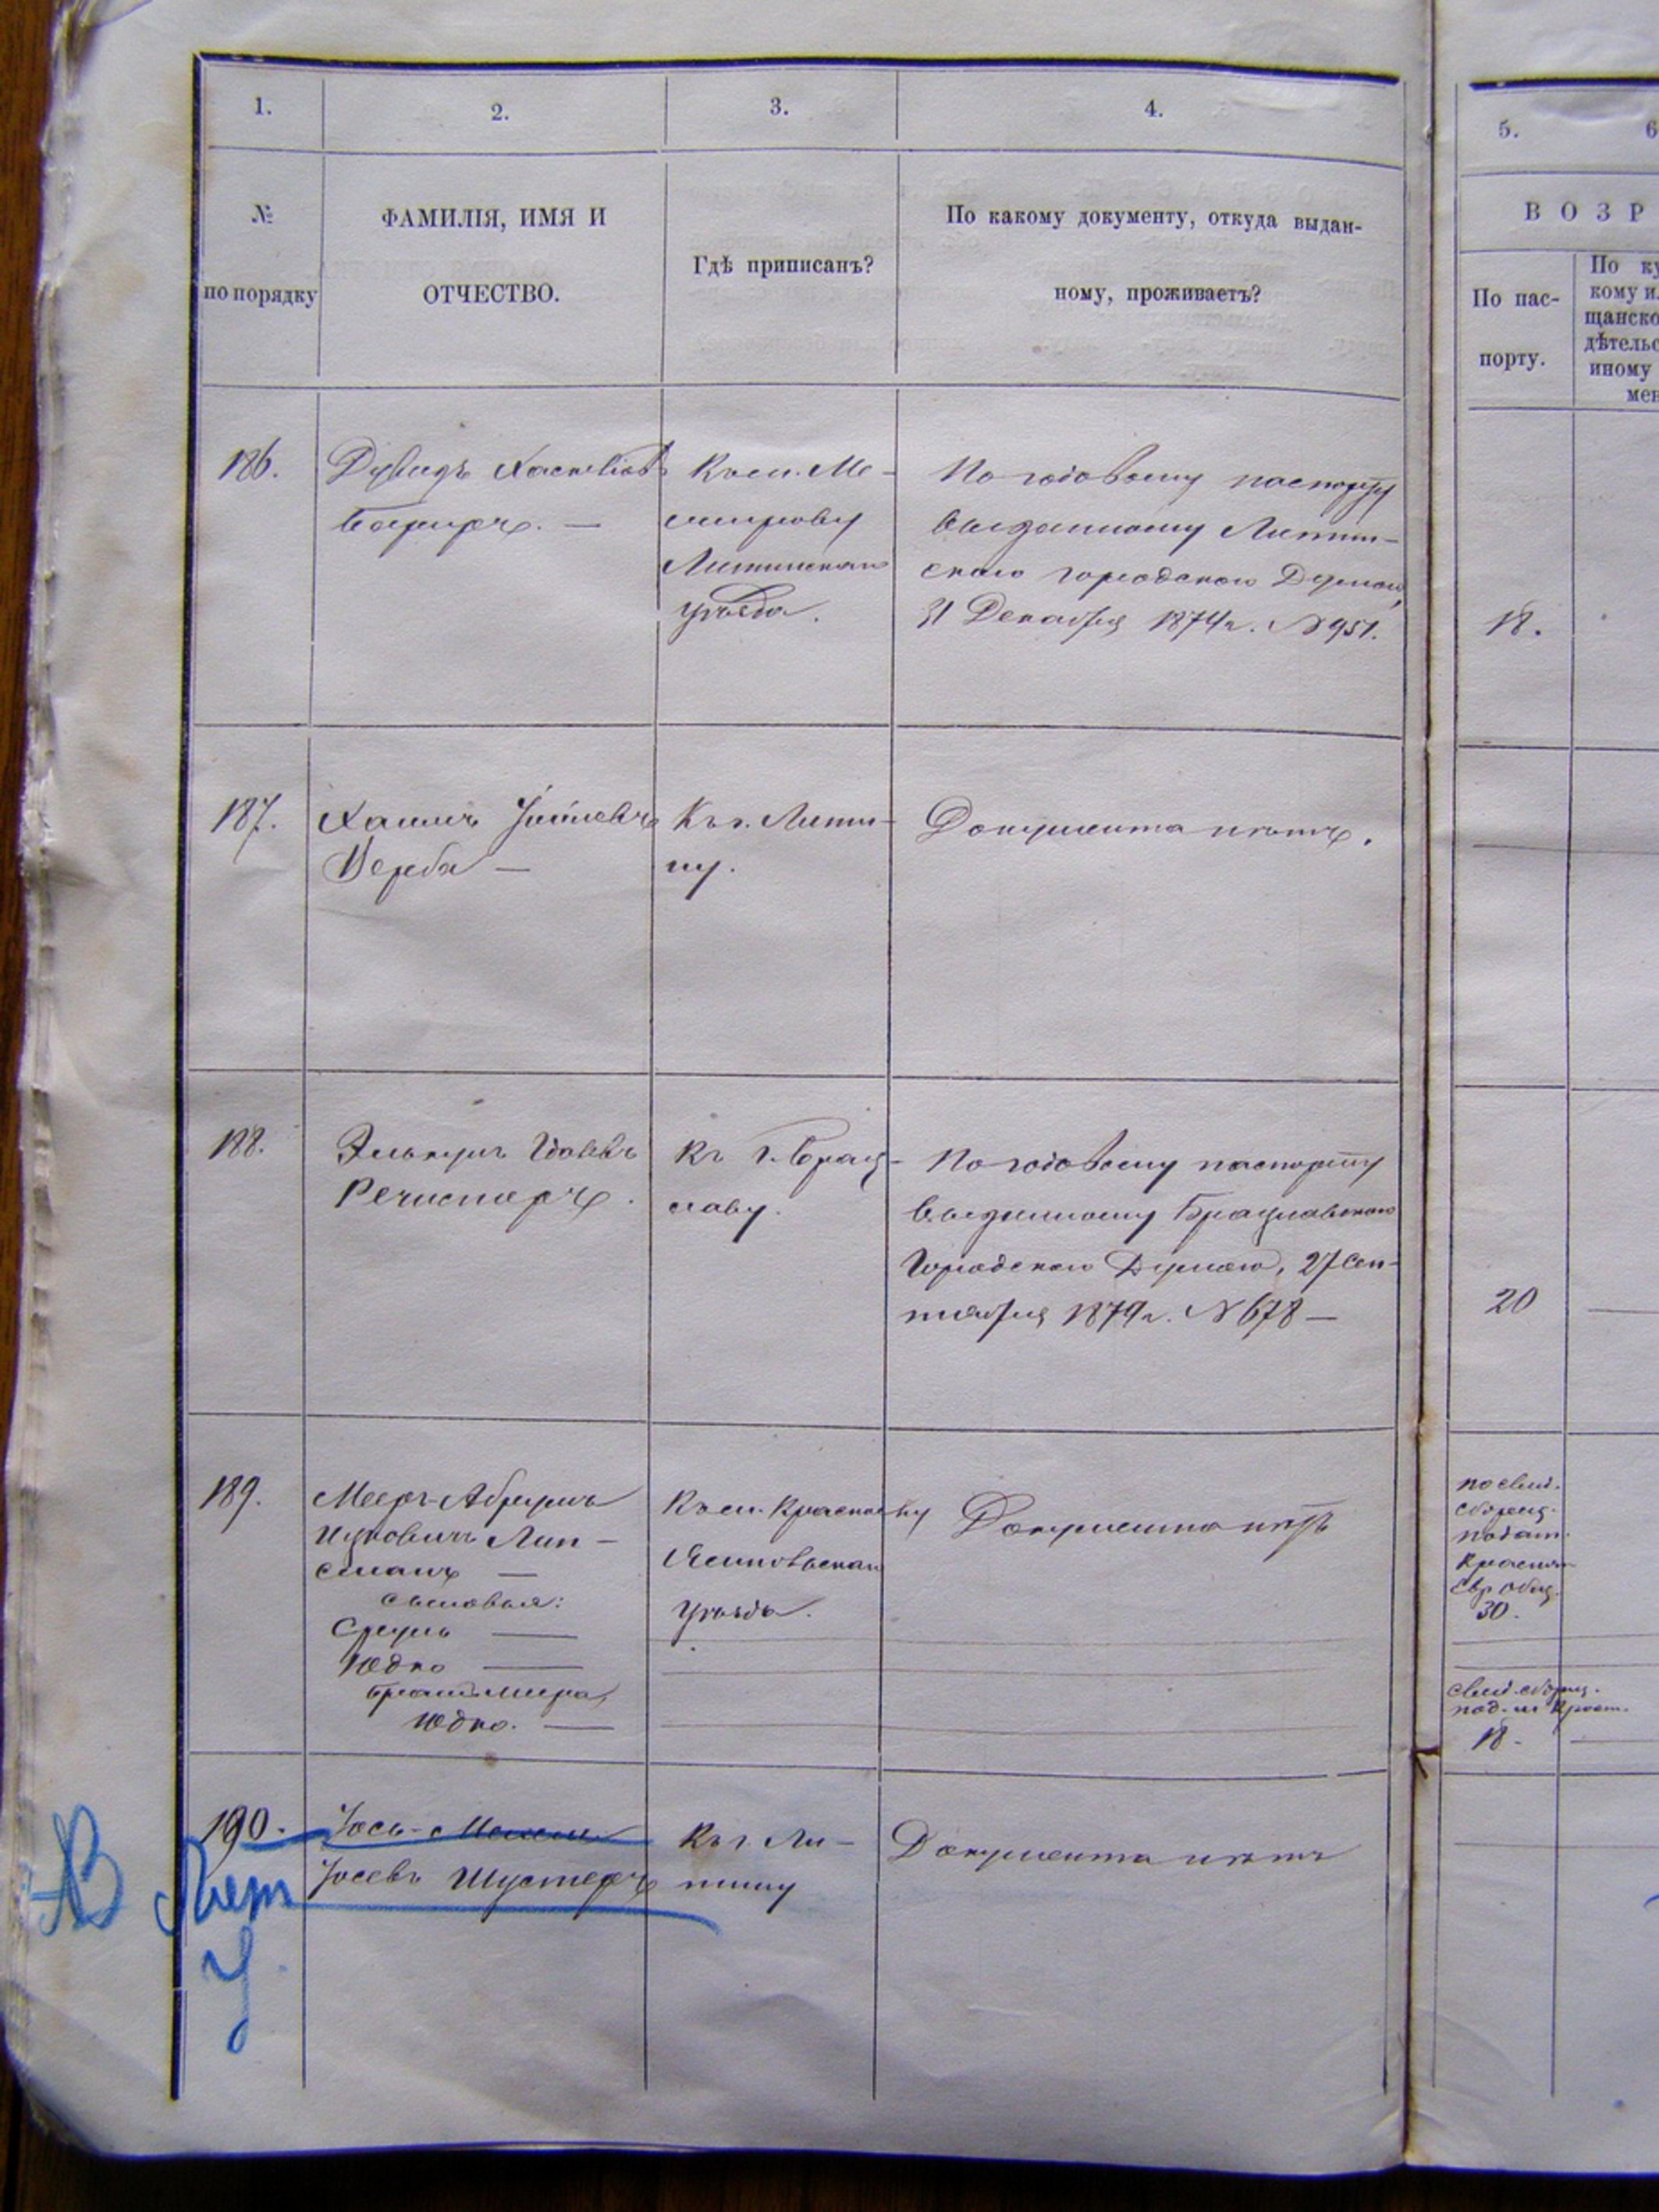 1.
2.
3.
4.
5.
6
№
по порядку
ФАМИЛІЯ, ИМЯ И
ОТЧЕСТВО.
Гдѣ приписанъ?
По какому документу, откуда выдан-
ному, проживаетъ?
В О З Р
По пас-
порту.
По ку
кому и
щанско
дѣтельс
иному
мен
186.
Дувидъ
Къ м. Не-
мирову
Литинскаго
уѣзда.
По годовому паспорту
выданному Литин-
скою городскою Думою,
31 Декабря 1874 г. № 951.
18.
187.
Верба —
Къ г. Лити-
ну.
Документа нѣтъ.
188.
Къ г. Брац-
славу.
По годовому паспорту
выданному Брацлавскою
Городскою Думою, 27 Сен-
тября 1874 г. № 678 —
20
189.
Мееръ-Абрумъ
Ицковичъ Лип-
сманъ —
сыновья:
Сруль —
Юдко —
братъ Меера,
Юдко. —
Къ м. Красному
Ямпольскаго
уѣзда.
Документа нѣтъ
по свид.
сборщ.
подат.
Краснян
Евр. общ.
30.
свид. сборщ.
под. м. Красн.
18.
190.
Іосевъ Шустеръ
Къ г. Ли-
тину
Документа нѣтъ